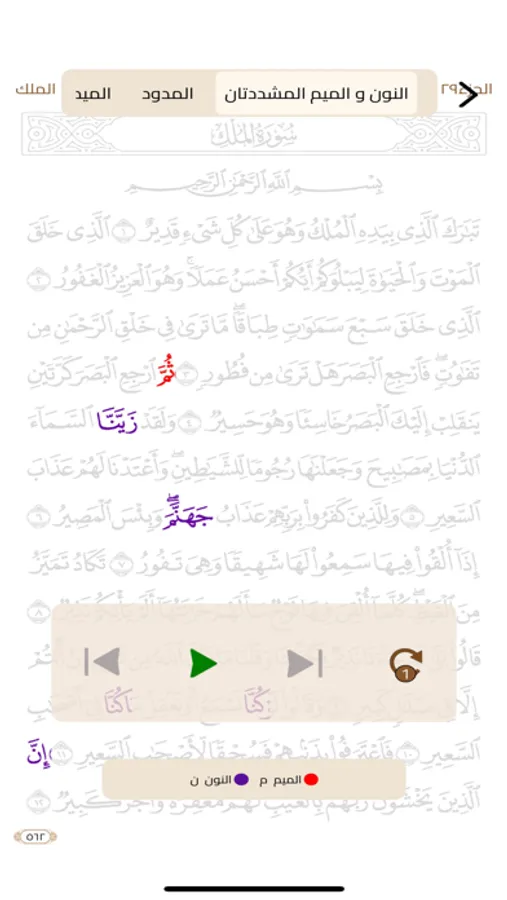 الملك
الميد المدود النون و الميم المشددتان
سُورَةُ المُلْكِ
بِسْمِ اللَّهِ الرَّحْمَٰنِ الرَّحِيمِ
تَبَٰرَكَ ٱلَّذِى بِيَدِهِ ٱلْمُلْكُ وَهُوَ عَلَىٰ كُلِّ شَىْءٍ قَدِيرٌ ١ ٱلَّذِى خَلَقَ
ٱلْمَوْتَ وَٱلْحَيَوٰةَ لِيَبْلُوَكُمْ أَيُّكُمْ أَحْسَنُ عَمَلًا ۚ وَهُوَ ٱلْعَزِيزُ ٱلْغَفُورُ ٢
ٱلَّذِى خَلَقَ سَبْعَ سَمَٰوَٰتٍ طِبَاقًا ۖ مَّا تَرَىٰ فِى خَلْقِ ٱلرَّحْمَٰنِ مِن
تَفَٰوُتٍ ۖ فَٱرْجِعِ ٱلْبَصَرَ هَلْ تَرَىٰ مِن فُطُورٍ ٣ ثُمَّ ٱرْجِعِ ٱلْبَصَرَ كَرَّتَيْنِ
يَنقَلِبْ إِلَيْكَ ٱلْبَصَرُ خَاسِئًا وَهُوَ حَسِيرٌ ٤ وَلَقَدْ زَيَّنَّا ٱلسَّمَآءَ
ٱلدُّنْيَا بِمَصَٰبِيحَ وَجَعَلْنَٰهَا رُجُومًا لِّلشَّيَٰطِينِ ۖ وَأَعْتَدْنَا لَهُمْ عَذَابَ
ٱلسَّعِيرِ ٥ وَلِلَّذِينَ كَفَرُوا۟ بِرَبِّهِمْ عَذَابُ جَهَنَّمَ ۖ وَبِئْسَ ٱلْمَصِيرُ ٦
إِذَآ أُلْقُوا۟ فِيهَا سَمِعُوا۟ لَهَا شَهِيقًا وَهِىَ تَفُورُ ٧ تَكَادُ تَمَيَّزُ
مِنَ ٨
1
كُنَّا كُنَّا
ٱلسَّعِيرِ ١٠ فَٱعْتَرَفُوا۟ بِذَنۢبِهِمْ فَسُحْقًا لِّأَصْحَٰبِ ٱلسَّعِيرِ ١١ إِنَّ
الميم م النون ن
ٱلَّذِينَ يَخْشَوْنَ رَبَّهُم بِٱلْغَيْبِ لَهُم مَّغْفِرَةٌ وَأَجْرٌ كَبِيرٌ ١٢
٥٦٢